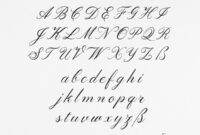 A B C D E F G H I
J K L M N O P Q R
S T U V W X Y Z ß
a b c d e f g h i
j k l m n o p q r
s t u v w x y z ß